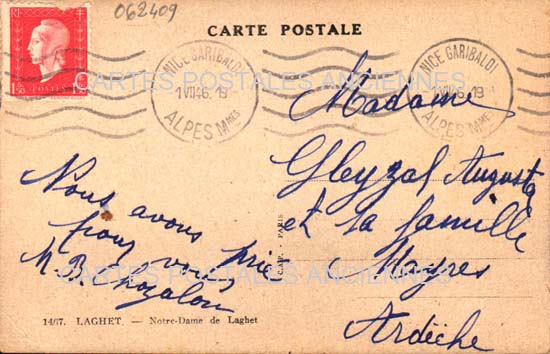 062409
CARTE POSTALE
RF
1F50 POSTES
NICE GARIBALDI
1 VII 46. 19
ALPES Mmes
NICE GARIBALDI
1 VII 46. 19
ALPES Mmes
CARTES POSTALES ANCIENNES
à
Madame
Gleyzal Augusta
et sa famille
à Mayres
Ardèche
Nous avons
prié
pour vous
M. B. Chozalon
PARIS
CARTES POSTALES ANCIENNES
14/67. LAGHET. — Notre-Dame de Laghet